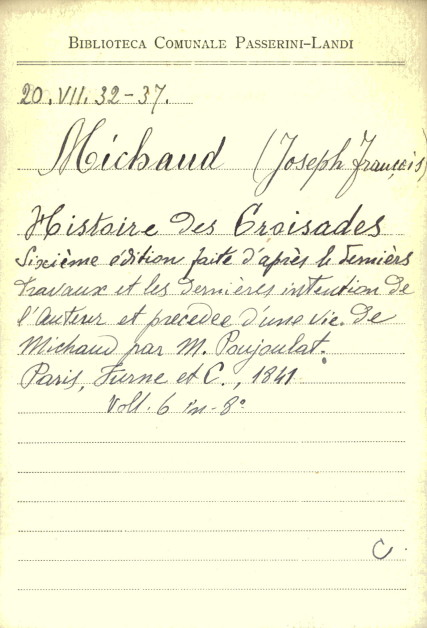 BIBLIOTECA COMUNALE PASSERINI-LANDI
20. VII. 32-37.
Michaud (Joseph François)
Histoire des Croisades
Sixième édition faite d'après le derniers
travaux et les dernières intention de
l'Auteur et precedee d'une vie. de
Michaud par M. Poujoulat.
Paris, Furne et C., 1841
Voll. 6 in-8°
C.